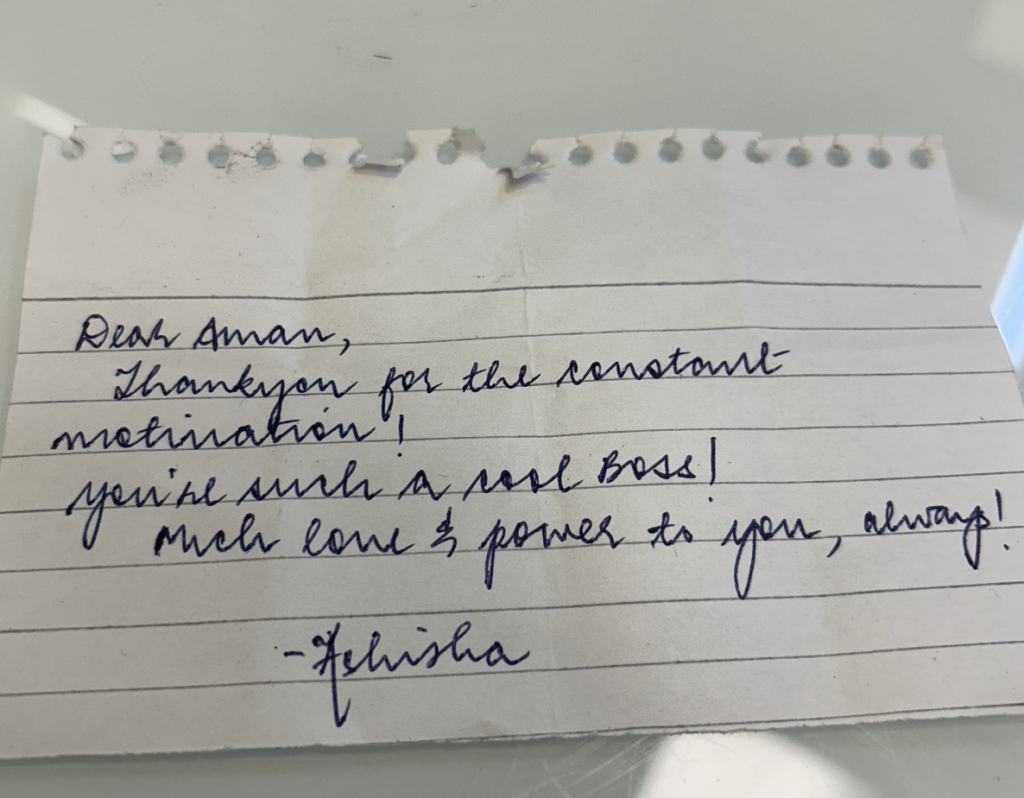 Dear Aman,
Thankyou for the constant
motivation!
you're such a cool Boss!
Much love & power to you, always!
-